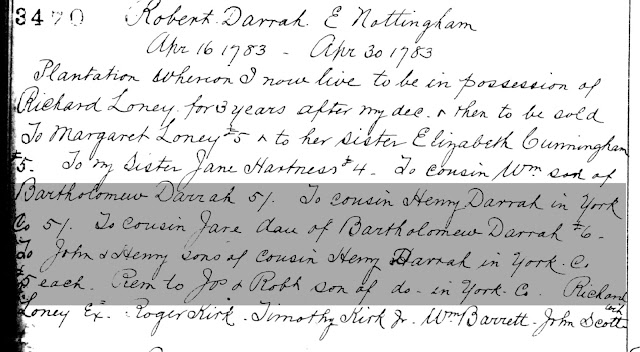 3470 Robert Darrah E Nottingham
Apr 16 1783 - Apr 30 1783
Plantation whereon I now live to be in possession of
Richard Loney for 3 years after my dec. & then to be sold
To Margaret Loney #5 & to her sister Elizabeth Cunningham
#5. To my Sister Jane Hartness #4 - To cousin Wm son of
Bartholomew Darrah 5/. To cousin Henry Darrah in York
Co 5/. To cousin Jane dau of Bartholomew Darrah #6 -
To John & Henry sons of cousin Henry Darrah in York Co
#5 each. Rem to Jos & Robt son of do - in York Co. Richard
Loney Ex. Roger Kirk. Timothy Kirk Jr. Wm Barrett. John Scott